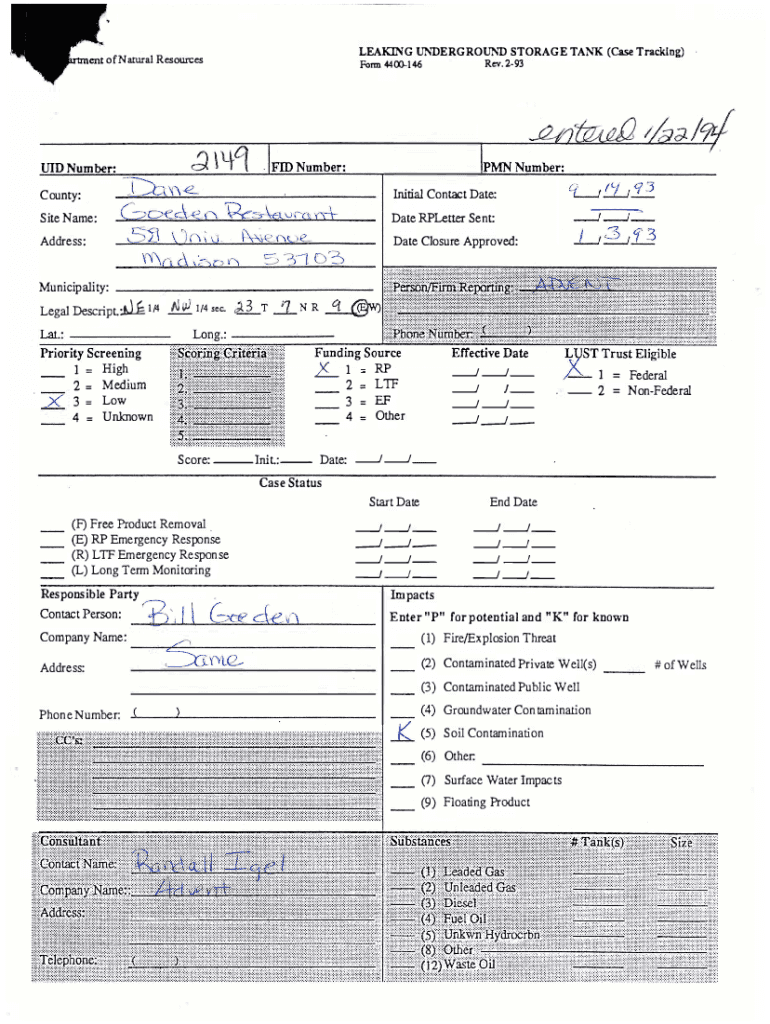 Department of Natural Resources
LEAKING UNDERGROUND STORAGE TANK (Case Tracking)
Form 4400-146 Rev. 2-93
entered 1/22/94
UID Number: 2149 FID Number: PMN Number:
County: Dane Initial Contact Date: 9/14/93
Site Name: Goeden Restaurant Date RPLetter Sent: / /
Address: Univ Avenue Date Closure Approved: 1/3/93
Madison 53703
Municipality: Person/Firm Reporting: ADVENT
Legal Descript.: NE 1/4 NW 1/4 sec. 23 T 7 N R 9 (E/W)
Lat.: Long.: Phone Number: ( )
Priority Screening Scoring Criteria Funding Source Effective Date LUST Trust Eligible
1 = High 1. X 1 = RP / / X 1 = Federal
2 = Medium 2. 2 = LTF / / 2 = Non-Federal
X 3 = Low 3. 3 = EF / /
4 = Unknown 4. 4 = Other / /
5.
Score: Init.: Date: / /
Case Status
Start Date End Date
(F) Free Product Removal / / / /
(E) RP Emergency Response / / / /
(R) LTF Emergency Response / / / /
(L) Long Term Monitoring / / / /
Responsible Party Impacts
Contact Person: Bill Goeden Enter "P" for potential and "K" for known
Company Name: (1) Fire/Explosion Threat
Same
Address: (2) Contaminated Private Well(s) # of Wells
(3) Contaminated Public Well
Phone Number: ( ) (4) Groundwater Contamination
CC's: K (5) Soil Contamination
(6) Other:
(7) Surface Water Impacts
(9) Floating Product
Consultant Substances # Tank(s) Size
Contact Name: Randall Igel (1) Leaded Gas
Company Name: Advent (2) Unleaded Gas
Address: (3) Diesel
(4) Fuel Oil
(5) Unkwn Hydrocrbn
(8) Other
Telephone: ( ) (12) Waste Oil